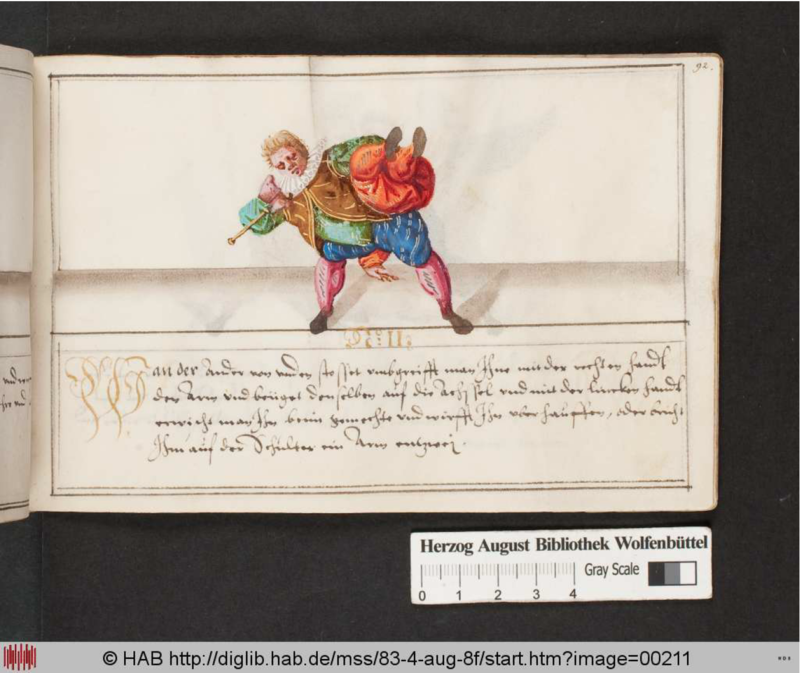 92.
No: 11:
Wan der Ander von unden stosset umbgreifft man Ihne mit der rechten handt
den Arm und beüget denselben auf die Achssel und mit der lincken handt
erwischt man Ihn beim gemechte und wirfft Ihn uber hauffen, oder bricht
Ihm auf der Schulter ein Arm entzweÿ.
Herzog August Bibliothek Wolfenbüttel
Gray Scale
0 1 2 3 4
© HAB http://diglib.hab.de/mss/83-4-aug-8f/start.htm?image=00211